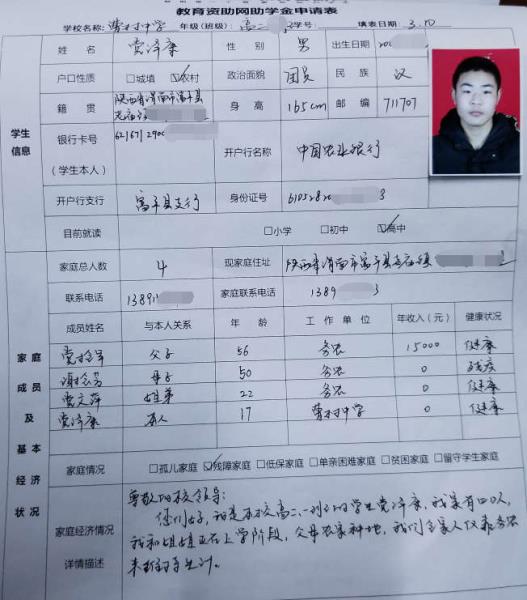 教育资助网助学金申请表
学校名称: 曹村中学 年级(班级): 高二 学号: 填表日期: 3.10
姓名 党泽康 性别 男 出生日期 200
户口性质 □城镇 ☑农村 政治面貌 团员 民族 汉
籍贯 陕西省渭南市富平县 身高 165cm 邮编 711707
学生信息
银行卡号 (学生本人) 62167/2900 开户行名称 中国农业银行
开户行支行 富平县支行 身份证号 6105282 3
目前就读 □小学 □初中 ☑高中
家庭总人数 4 现家庭住址 陕西省渭南市富平县
联系电话 1389 家庭联系电话 1389 3
成员姓名 与本人关系 年龄 工作单位 年收入(元) 健康状况
父子 56 务农 15000 健康
母子 50 务农 0 残疾
党文萍 姐弟 22 务农 0 健康
党泽康 本人 17 曹村中学 0 健康
家庭成员及基本经济状况
家庭情况 □孤儿家庭 ☑残障家庭 □低保家庭 □单亲困难家庭 □贫困家庭 □留守学生家庭
家庭经济情况详情描述
尊敬的校领导:
你们好,我是本校高二一班的学生党泽康,我家有四口人,
我和姐姐正在上学阶段,父母在家种地,我们全家人仅靠务农
来维持生计。